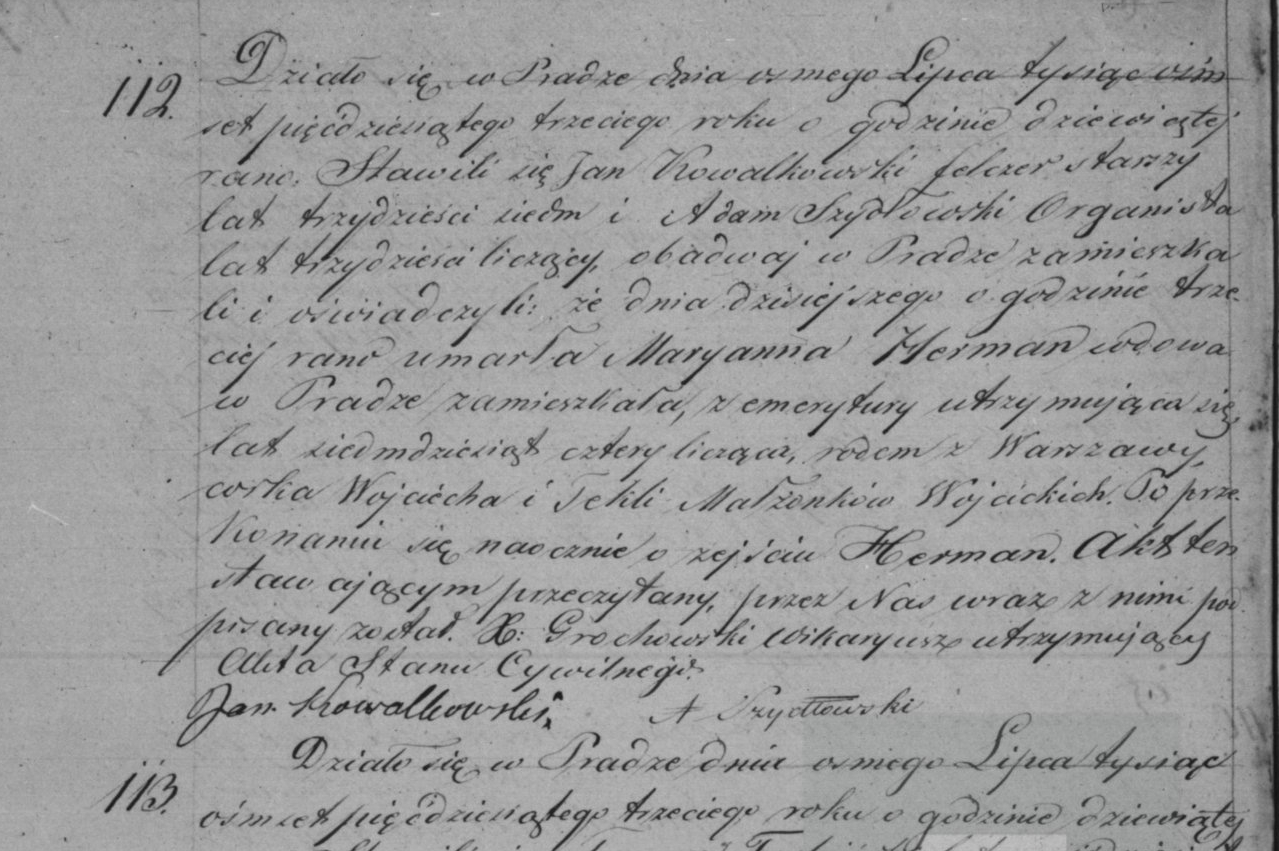 112. Działo się w Pradze dnia osmego Lipca tysiąc ośm
set pięćdziesiątego trzeciego roku o godzinie dziewiątej
rano. Stawili się Jan Kowalkowski felczer starszy
lat trzydzieści siedm i Adam Szydłowski Organista
lat trzydzieści liczący, obadwaj w Pradze zamieszka
li i oświadczyli: że dnia dzisiejszego o godzinie trze-
ciej rano umarła Maryanna Herman wdowa
w Pradze zamieszkała, z emerytury utrzymująca się,
lat siedmdziesiąt cztery licząca, rodem z Warszawy,
corka Wojciecha i Tekli Małżonków Wojcickich. Po prze-
konaniu się naocznie o zejściu Herman. Akt ten
stawającym przeczytany, przez Nas wraz z nimi pod
pisany został. X: Grochowski Wikaryusz utrzymujący
Akta Stanu Cywilnego.
Jan Kowalkowski, A Szydłowski
113. Działo się w Pradze dnia osmego Lipca tysiąc
ośmset pięćdziesiątego trzeciego roku o godzinie dziewiątej